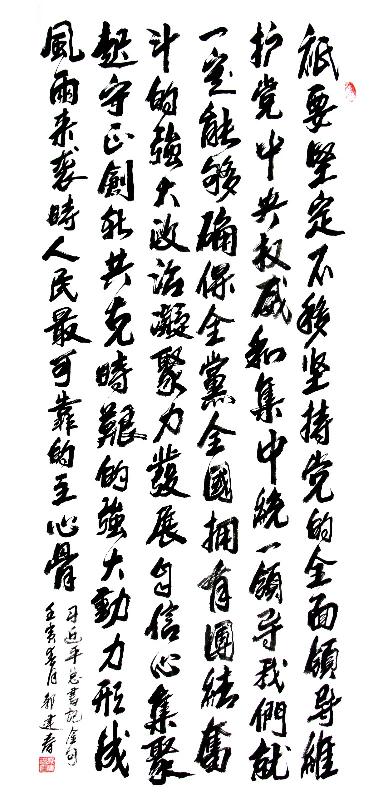 祇要堅定不移坚持党的全面領导維
护党中央权威和集中統一領导我們就
一定能够确保全黨全國拥有團结奮
斗的強大政治凝聚力發展自信心集聚
起守正創新共克時艱的強大動力形成
風雨来袭時人民最可靠的主心骨
习近平总書記金句
壬寅春月